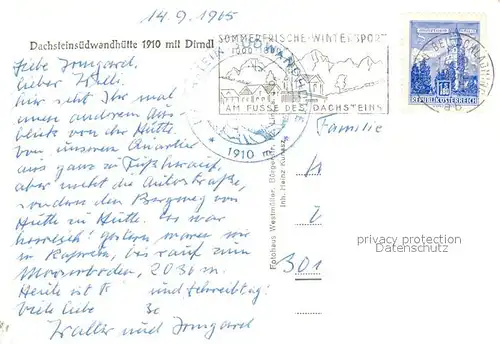 14.9.1965
Dachsteinsüdwandhütte 1910 mit Dirndl
SOMMERFRISCHE-WINTERSPORT
AM FUSSE DES DACHSTEINS
1910
REPUBLIK ÖSTERREICH
Liebe Irmgard,
lieber Willi.
hier seht Ihr mal
einen anderen Aus-
blick von der Hütte.
Von unserem Quartier
aus ganz zu Fuß herauf,
aber nicht die Autostraße,
sondern den Bergweg von
Hütte zu Hütte. es war
herrlich! gestern waren wir
in Kaprun, bis rauf zum
Mooserboden, 2030 m.
Heute ist und Schreibtag!
Viele liebe
Walter und Irmgard
Familie
301
Fotohaus Westmüller, Bürgerstr.
Inh. Heinz
privacy protection
Datenschutz